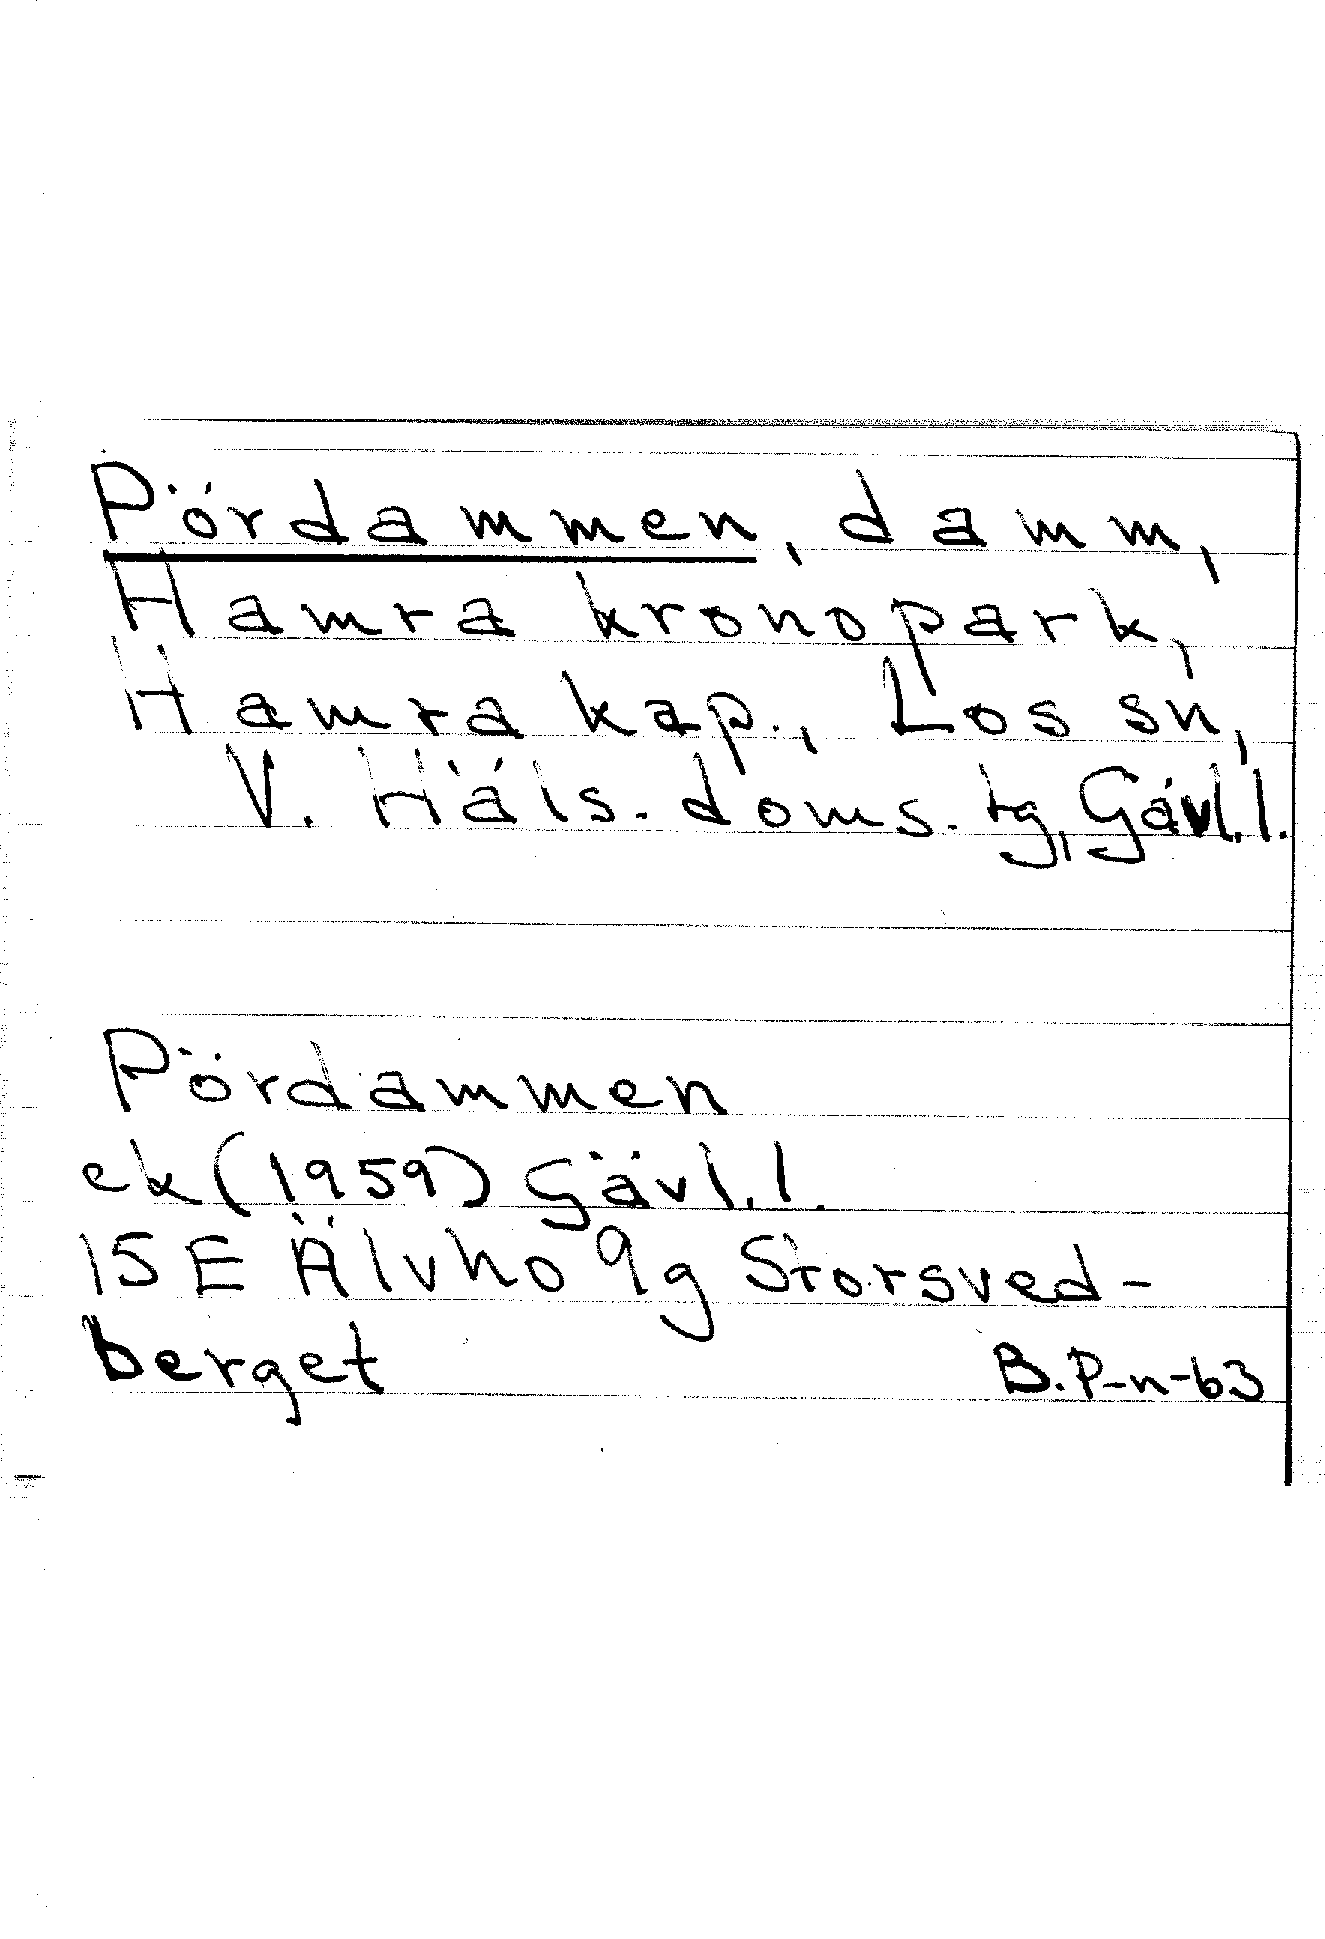 Pördammen, damm,
Hamra kronopark,
Hamra kap., Los sn,
V. Häls. doms. tg, Gävl.l.
Pördammen
ek (1959) Gävl.l.
15E Älvho 9g Storsved-
berget B.P-n-63